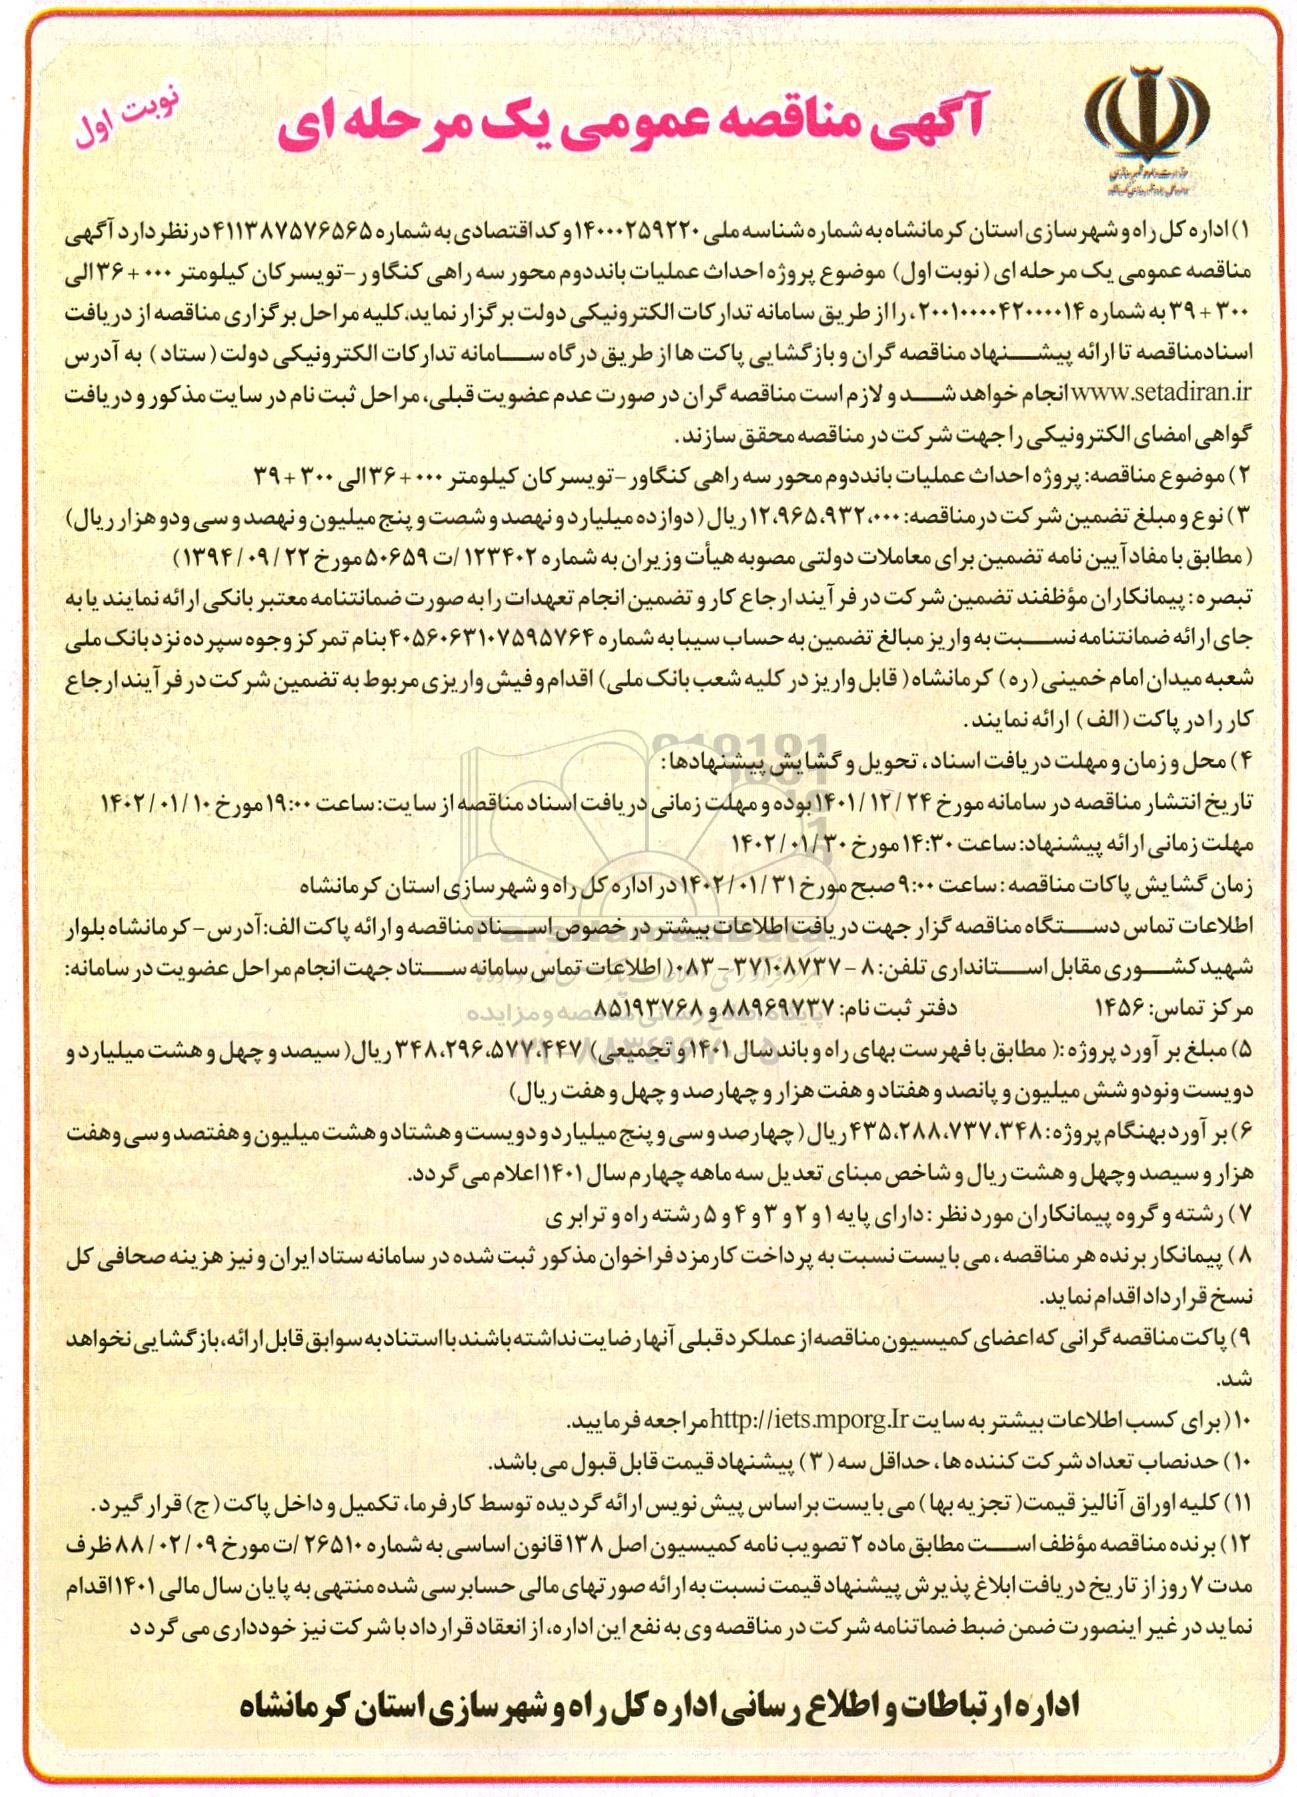 آگهی مناقصه عمومی یک مرحله ای
نوبت اول
۱) اداره کل راه و شهرسازی استان کرمانشاه به شماره شناسه ملی ۱۴۰۰۰۲۵۹۲۲۰ و کد اقتصادی به شماره ۴۱۱۳۸۷۵۷۶۵۶۵ در نظر دارد آگهی
مناقصه عمومی یک مرحله ای (نوبت اول) موضوع پروژه احداث عملیات باند دوم محور سه راهی کنگاور -تویسرکان کیلومتر ۰۰۰+۳۶ الی
۳۰۰+۳۹ به شماره ۲۰۰۱۰۰۰۰۴۲۰۰۰۰۱۴، را از طریق سامانه تدارکات الکترونیکی دولت برگزار نماید.کلیه مراحل برگزاری مناقصه از دریافت
اسناد مناقصه تا ارائه پیشنهاد مناقصه گران و بازگشایی پاکت ها از طریق درگاه سامانه تدارکات الکترونیکی دولت (ستاد) به آدرس
www.setadiran.ir انجام خواهد شد و لازم است مناقصه گران در صورت عدم عضویت قبلی، مراحل ثبت نام در سایت مذکور و دریافت
گواهی امضای الکترونیکی را جهت شرکت در مناقصه محقق سازند.
۲) موضوع مناقصه: پروژه احداث عملیات باند دوم محور سه راهی کنگاور -تویسرکان کیلومتر ۰۰۰+۳۶ الی ۳۰۰+۳۹
۳) نوع و مبلغ تضمین شرکت در مناقصه: ۱۲،۹۶۵،۹۳۲،۰۰۰ ریال (دوازده میلیارد و نهصد و شصت و پنج میلیون و نهصد و سی و دو هزار ریال)
(مطابق با مفاد آیین نامه تضمین برای معاملات دولتی مصوبه هیأت وزیران به شماره ۱۲۳۴۰۲/ت ۵۰۶۵۹ مورخ ۱۳۹۴/۰۹/۲۲)
تبصره: پیمانکاران مؤظفند تضمین شرکت در فرآیند ارجاع کار و تضمین انجام تعهدات را به صورت ضمانتنامه معتبر بانکی ارائه نمایند یا به
جای ارائه ضمانتنامه نسبت به واریز مبالغ تضمین به حساب سیبا به شماره ۴۰۵۶۰۶۳۱۰۷۵۹۵۷۶۴ بنام تمرکز وجوه سپرده نزد بانک ملی
شعبه میدان امام خمینی (ره) کرمانشاه (قابل واریز در کلیه شعب بانک ملی) اقدام و فیش واریزی مربوط به تضمین شرکت در فرآیند ارجاع
کار را در پاکت (الف) ارائه نمایند.
۴) محل و زمان و مهلت دریافت اسناد، تحویل و گشایش پیشنهادها:
تاریخ انتشار مناقصه در سامانه مورخ ۱۴۰۱/۱۲/۲۴ بوده و مهلت زمانی دریافت اسناد مناقصه از سایت: ساعت ۱۹:۰۰ مورخ ۱۴۰۲/۰۱/۱۰
مهلت زمانی ارائه پیشنهاد: ساعت ۱۴:۳۰ مورخ ۱۴۰۲/۰۱/۳۰
زمان گشایش پاکات مناقصه: ساعت ۹:۰۰ صبح مورخ ۱۴۰۲/۰۱/۳۱ در اداره کل راه و شهرسازی استان کرمانشاه
اطلاعات تماس دستگاه مناقصه گزار جهت دریافت اطلاعات بیشتر در خصوص اسناد مناقصه و ارائه پاکت الف: آدرس- کرمانشاه بلوار
شهید کشوری مقابل استانداری تلفن: ۸-۳۷۱۰۸۷۳۷-۰۸۳ (اطلاعات تماس سامانه ستاد جهت انجام مراحل عضویت در سامانه:
مرکز تماس: ۱۴۵۶ دفتر ثبت نام: ۸۸۹۶۹۷۳۷ و ۸۵۱۹۳۷۶۸
۵) مبلغ برآورد پروژه: (مطابق با فهرست بهای راه و باند سال ۱۴۰۱ و تجمیعی) ۳۴۸،۲۹۶،۵۷۷،۴۴۷ ریال (سیصد و چهل و هشت میلیارد و
دویست و نود و شش میلیون و پانصد و هفتاد و هفت هزار و چهارصد و چهل و هفت ریال)
۶) برآورد بهنگام پروژه: ۴۳۵،۲۸۸،۷۳۷،۳۴۸ ریال (چهارصد و سی و پنج میلیارد و دویست و هشتاد و هشت میلیون و هفتصد و سی و هفت
هزار و سیصد و چهل و هشت ریال و شاخص مبنای تعدیل سه ماهه چهارم سال ۱۴۰۱ اعلام می گردد.
۷) رشته و گروه پیمانکاران مورد نظر: دارای پایه ۱ و ۲ و ۳ و ۴ و ۵ رشته راه و ترابری
۸) پیمانکار برنده هر مناقصه، می بایست نسبت به پرداخت کارمزد فراخوان مذکور ثبت شده در سامانه ستاد ایران و نیز هزینه صحافی کل
نسخ قرارداد اقدام نماید.
۹) پاکت مناقصه گرانی که اعضای کمیسیون مناقصه از عملکرد قبلی آنها رضایت نداشته باشند با استناد به سوابق قابل ارائه، بازگشایی نخواهد
شد.
۱۰) برای کسب اطلاعات بیشتر به سایت http://iets.mporg.Ir مراجعه فرمایید.
۱۰) حدنصاب تعداد شرکت کننده ها، حداقل سه (۳) پیشنهاد قیمت قابل قبول می باشد.
۱۱) کلیه اوراق آنالیز قیمت (تجزیه بها) می بایست براساس پیش نویس ارائه گردیده توسط کارفرما، تکمیل و داخل پاکت (ج) قرار گیرد.
۱۲) برنده مناقصه مؤظف است مطابق ماده ۲ تصویب نامه کمیسیون اصل ۱۳۸ قانون اساسی به شماره ۲۶۵۱۰/ت مورخ ۸۸/۰۲/۰۹ ظرف
مدت ۷ روز از تاریخ دریافت ابلاغ پذیرش پیشنهاد قیمت نسبت به ارائه صورتهای مالی حسابرسی شده منتهی به پایان سال مالی ۱۴۰۱ اقدام
نماید در غیر اینصورت ضمن ضبط ضمانتنامه شرکت در مناقصه وی به نفع این اداره، از انعقاد قرارداد با شرکت نیز خودداری می گردد
اداره ارتباطات و اطلاع رسانی اداره کل راه و شهرسازی استان کرمانشاه